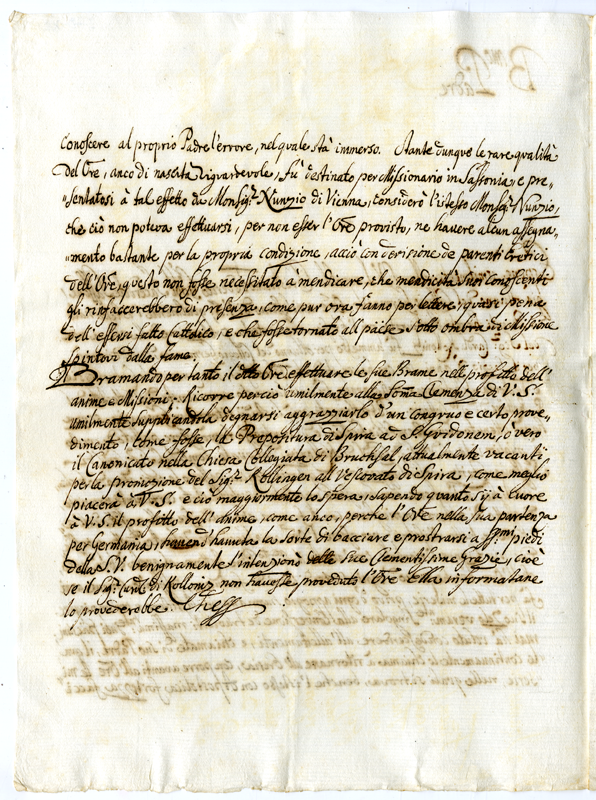 conoscere al proprio Padre l'errore, nel quale stà immerso. Stante dunque le rare qualità
del Ore, anco di nascità riguardevole, fù destinato per Missionario in Sassonia, e pre=
=sentatosi à tal effetto da Monsig.r Nunzio di Vienna, considerò l'istesso Monsig.r Nunzio,
che ciò non poteva effettuarsi, per non esser l'Ore provisto, ne havere alcun assegna=
=mento bastante per la propria condizione, acciò con derisione de parenti Eretici
dell'Ore, questo non fosse necessitato à mendicare, che mendicità suoi conoscenti
gli rinfaccerebbero di presenza, come pur ora fanno per lettere, quasi pena
dell'essersi fatto Cattolico, e che fosse tornato al paese sotto ombra di Missione
spintovi dalla fame.
Bramando per tanto il d.tto Ore effettuare le sue Brame nelle profitto dell'
anime e Missioni; Ricorre perciò umilmente alla Som̃a Clemenza di V. S.
umilmente Supplicandola degnarsi aggrazziarlo d'un congruo e certo prove=
dimento, come fosse, la Prepositura di Spira ad S. Guidonem, ò vero
il Canonicato nella Chiesa Collegiata di Bruchsal, attualmente vacanti,
per la promozione del Sig.r Rollingen al Vescovato di Spira, come meglio
piacerà à V. S. e ciò maggiormente lo spera, sapendo quanto sij à Cuore
à V. S. il profitto dell'anime, come anco, perche l'Ore nella sua partenza
per Germania, havend'havuta la sorte di bacciare e prostrarsi a SSmi piedi
della S. V. benignamente l'intenzionò delle sue Clementissime grazie, Cioè
se il Sig.r Card. di Kolloniz non havesse proveduto l'Ore Ella informatane
lo provederebbe. Che &